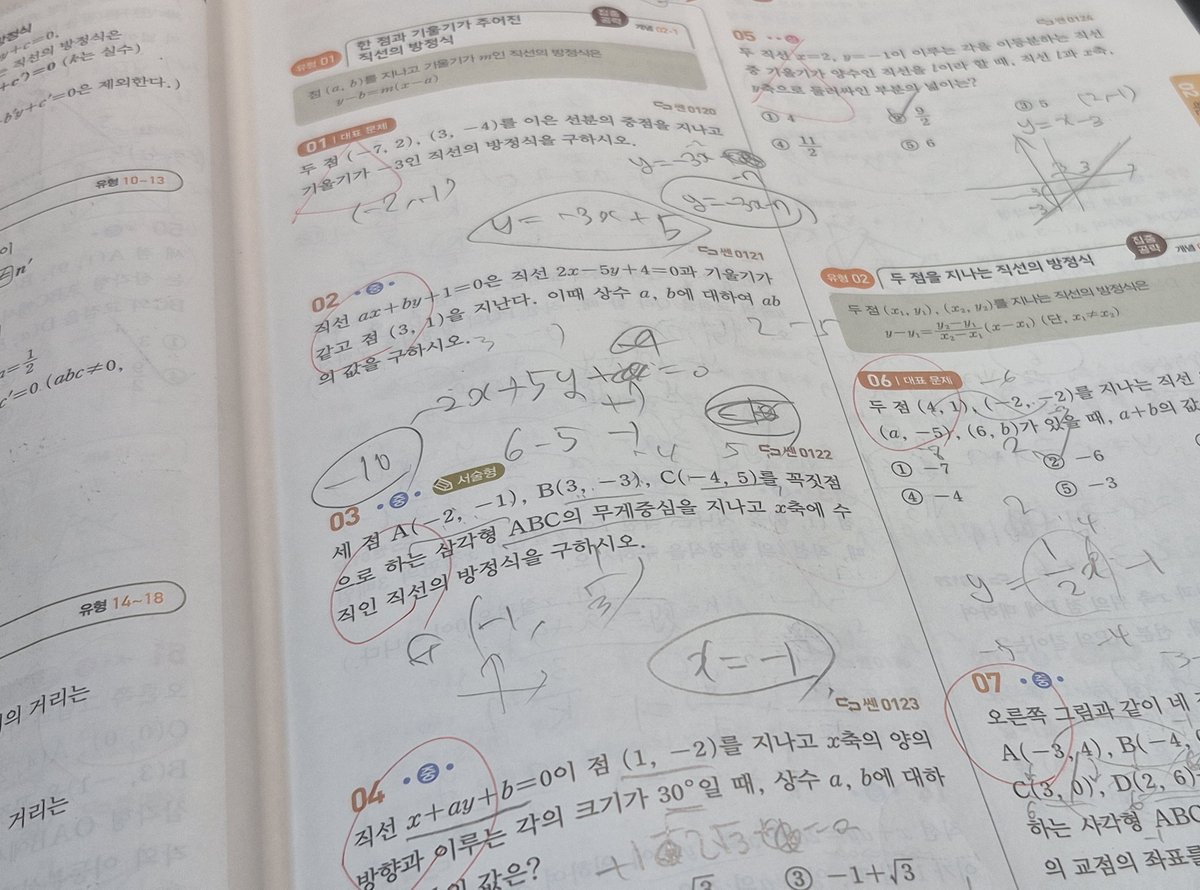 방정식
y+c=0,
직선의 방정식은
+c')=0 (k는 실수)
b'y+c'=0은 제외한다.)
유형 10~13
이
n'
a=1/2
c'=0 (abc≠0,
유형 14~18
의 거리는
거리는
유형 01 한 점과 기울기가 주어진
직선의 방정식
집중 공략
개념 02-1
점 (a, b)를 지나고 기울기가 m인 직선의 방정식은
y-b=m(x-a)
쎈 0120
01 | 대표 문제
두 점 (-7, 2), (3, -4)를 이은 선분의 중점을 지나고
기울기가 -3인 직선의 방정식을 구하시오.
y=-3x
(-2, -1)
y=-3x+5
y=-3x-7
쎈 0121
02 중
직선 ax+by+1=0은 직선 2x-5y+4=0과 기울기가
같고 점 (3, 1)을 지난다. 이때 상수 a, b에 대하여 ab
의 값을 구하시오.
-2x+5y
=0
6-5
-10
쎈 0122
03 중 서술형
세 점 A(-2, -1), B(3, -3), C(-4, 5)를 꼭짓점
으로 하는 삼각형 ABC의 무게중심을 지나고 x축에 수
직인 직선의 방정식을 구하시오.
(-1, 1/3)
x=-1
쎈 0123
04 중
직선 x+ay+b=0이 점 (1, -2)를 지나고 x축의 양의
방향과 이루는 각의 크기가 30°일 때, 상수 a, b에 대하
값은?
③ -1+√3
쎈 0124
05 중
두 직선 x=2, y=-1이 이루는 각을 이등분하는 직선
중 기울기가 양수인 직선을 l이라 할 때, 직선 l과 x축,
y축으로 둘러싸인 부분의 넓이는?
① 4
② 9/2
③ 5
④ 11/2
⑤ 6
(2, -1)
y=x-3
3
-3
유형 02 두 점을 지나는 직선의 방정식
집중 공략
개념
두 점 (x₁, y₁), (x₂, y₂)를 지나는 직선의 방정식은
y-y₁=(y₂-y₁)/(x₂-x₁)(x-x₁) (단, x₁≠x₂)
06 | 대표 문제
-6
두 점 (4, 1), (-2, -2)를 지나는 직선
(a, -5), (6, b)가 있을 때, a+b의 값
-8
2
① -7
② -6
④ -4
⑤ -3
y=1/2x-1
07 중
오른쪽 그림과 같이 네
A(-3, 4), B(-4,
C(3, 0), D(2, 6)
하는 사각형 ABC
의 교점의 좌표를